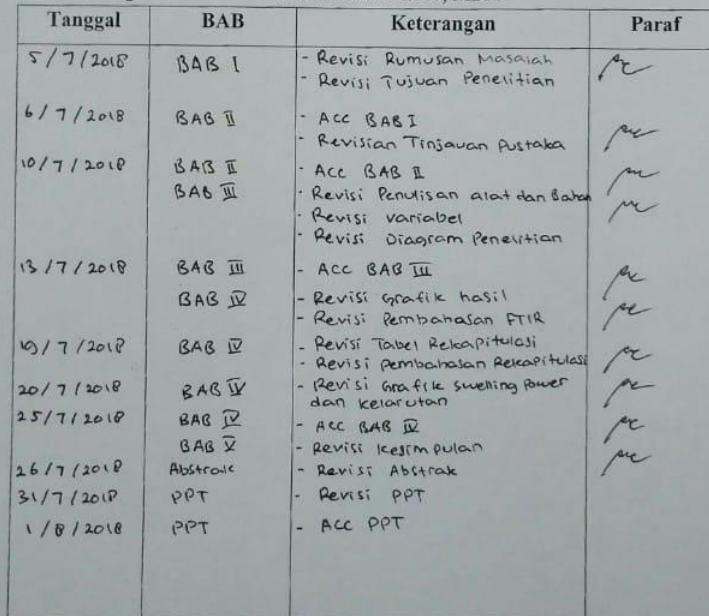 Tanggal BAB Keterangan Paraf
5/7/2018 BAB I - Revisi Rumusan Masalah
- Revisi Tujuan Penelitian
6/7/2018 BAB II - Acc BAB I
- Revisian Tinjauan Pustaka
10/7/2018 BAB II - Acc BAB II
BAB III - Revisi Penulisan alat dan Bahan
- Revisi variabel
- Revisi Diagram Penelitian
13/7/2018 BAB III - ACC BAB III
BAB IV - Revisi Grafik hasil
- Revisi Pembahasan FTIR
19/7/2018 BAB IV - Revisi Tabel Rekapitulasi
- Revisi pembahasan Rekapitulasi
20/7/2018 BAB IV - Revisi Grafik swelling power
dan kelarutan
25/7/2018 BAB IV - Acc BAB IV
BAB V - Revisi kesimpulan
26/7/2018 Abstrak - Revisi Abstrak
31/7/2018 PPT - Revisi PPT
1/8/2018 PPT - Acc PPT